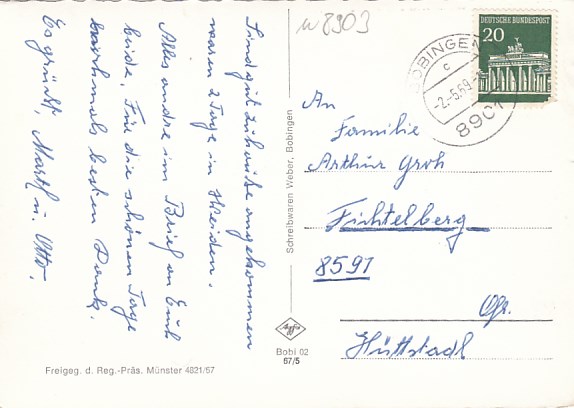 Sind gut zuhause angekommen
waren 2 Tage in Weiden.
Alles andre im Brief an Euch
beide. Für die schönen Tage
nochmals besten Dank.
Es grüßt, Marth u. Otto.
W 8903
DEUTSCHE BUNDESPOST
20
BOBINGEN
c
-2.-5.69
8901
An
Familie
Arthur Groh
Fichtelberg
8591
Ofr.
Hüttstadl
Schreibwaren Weber, Bobingen
Agfa
Bobi 02
67/5
Freigeg. d. Reg.-Präs. Münster 4821/57